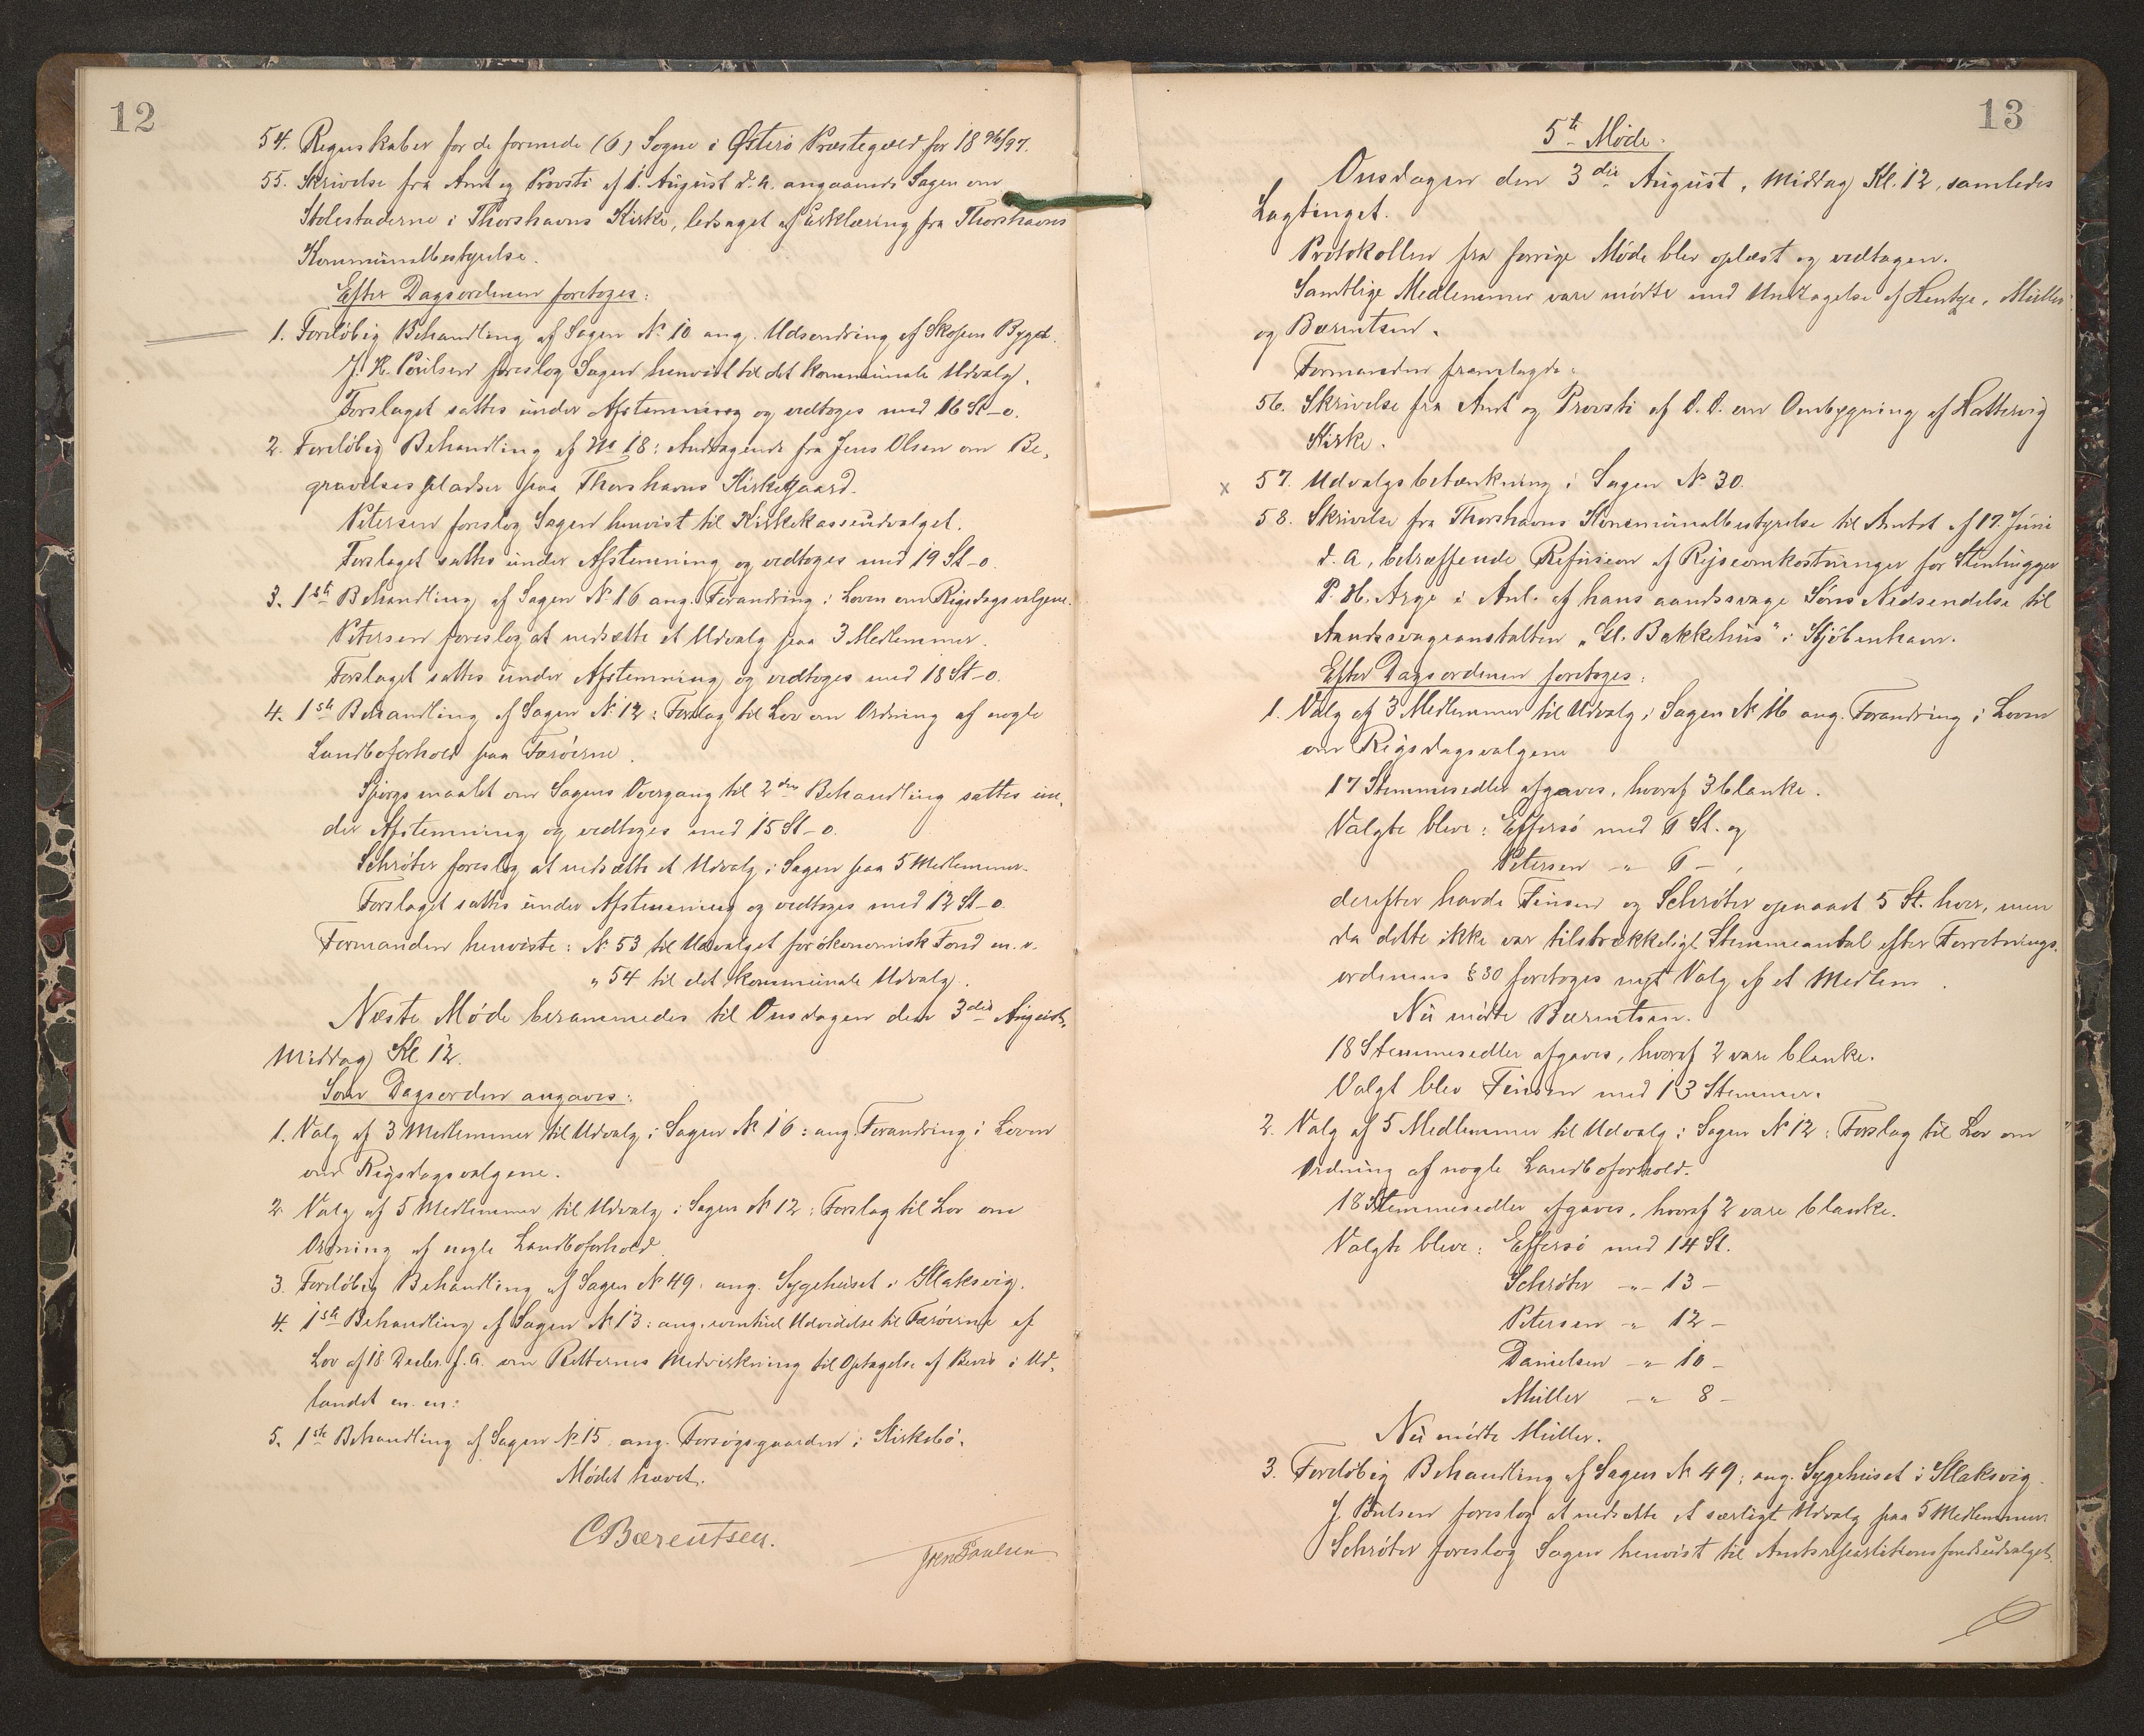 12
54. Regnskaber for de forenede (6) Sogne i Østerø Præstegæld for 18 96/97.
55. Skrivelse fra Amt og Provsti af 1. August d. A. angaaende Sagen om
Stolestaderne i Thorshavns Kirke, ledsaget af Erklæring fra Thorshavns
Kommunalbestyrelse.
Efter Dagsordenen foretoges:
1. Foreløbig Behandling af Sagen № 10 ang. Udsondring af Skopen Bygd.
J. H. Poulsen foreslog Sagen henvist til det kommunale Udvalg.
Forslaget sattes under Afstemning og vedtoges med 16 St-0.
2. Foreløbig Behandling af № 18: Andragende fra Jens Olsen om Be-
gravelsespladser paa Thorshavns Kirkegaard.
Petersen foreslog Sagen henvist til Kirkekasseudvalget.
Forslaget sattes under Afstemning og vedtoges med 19 St-0.
3. 1ste Behandling af Sagen № 16 ang. Forandring i Loven om Rigsdagsvalgene.
Petersen foreslog at nedsætte et Udvalg paa 3 Medlemmer.
Forslaget sattes under Afstemning og vedtoges med 18 St-0.
4. 1ste Behandling af Sagen № 12: Forslag til Lov om Ordning af nogle
Landboforhold paa Færøerne.
Spørgsmaalet om Sagens Overgang til 2den Behandling sattes un-
der Afstemning og vedtoges med 15 St-0.
Schrøter foreslog at nedsætte et Udvalg i Sagen paa 5 Medlemmer.
Forslaget sattes under Afstemning og vedtoges med 12 St-0.
Formanden henviste: № 53 til Udvalget for økonomisk Fond m. v.
„ 54 til det kommunale Udvalg.
Næste Møde berammedes til Onsdagen den 3die August,
Middag Kl. 12.
Som Dagsorden angaves:
1. Valg af 3 Medlemmer til Udvalg i Sagen № 16: ang. Forandring i Loven
om Rigsdagsvalgene.
2. Valg af 5 Medlemmer til Udvalg i Sagen № 12: Forslag til Lov om
Ordning af nogle Landboforhold.
3. Foreløbig Behandling af Sagen № 49: ang. Sygehuset i Klaksvig.
4. 1ste Behandling af Sagen № 13: ang. eventuel Udvidelse til Færøerne af
Lov af 18 Decbr. f. A. om Retternes Medvirkning til Optagelse af Bevis i Ud-
landet m. m:
5. 1ste Behandling af Sagen № 15 ang. Forsøgsgaarden i Kirkebø.
Mødet hævet.
CBærentsen.
Joen Poulsen
13
5te Møde.
Onsdagen den 3die August, Middag Kl. 12, samledes
Lagtinget.
Protokollen fra forrige Møde blev oplæst og vedtagen.
Samtlige Medlemmer vare mødte med Undtagelse af Hentze, Müller
og Bærentsen.
Formanden fremlagde:
56. Skrivelse fra Amt og Provsti af D. D. om Ombygning af Hattervig
Kirke.
x 57. Udvalgsbetænkning i Sagen № 30.
58. Skrivelse fra Thorshavns Kommunalbestyrelse til Amtet af 17. Juni
d. A, betræffende Refusion af Rejseomkostninger for Stenhugger
P. H. Arge i Anl. af hans aandssvage Søns Nedsendelse til
Aandssvageanstalten „Gl. Bakkehus" i Kjøbenhavn.
Efter Dagsordenen foretoges:
1. Valg af 3 Medlemmer til Udvalg i Sagen № 16 ang. Forandring i Loven
om Rigsdagsvalgene
17 Stemmesedler afgaves, hvoraf 3 blanke.
Valgte bleve: Effersø med 6 St. og
Petersen -„- 6 -,
derefter havde Finsen og Schrøter opnaaet 5 St. hver, men
da dette ikke var tilstrækkeligt Stemmeantal efter Forretnings-
ordenens § 30 foretoges nyt Valg af et Medlem.
Nu mødte Bærentsen.
18 Stemmesedler afgaves, hvoraf 2 vare blanke.
Valgt blev Finsen med 13 Stemmer.
2. Valg af 5 Medlemmer til Udvalg i Sagen № 12: Forslag til Lov om
Ordning af nogle Landboforhold.
18 Stemmesedler afgaves, hvoraf 2 vare blanke.
Valgte bleve: Effersø med 14 St.
Schrøter -„- 13 -
Petersen -„- 12 -
Danielsen -„- 10 -
Müller -„- 8 -
Nu mødte Müller.
3. Foreløbig Behandling af Sagen № 49: ang. Sygehuset i Klaksvig.
J. Poulsen foreslog at nedsætte et særligt Udvalg paa 5 Medlemmer
Schrøter foreslog Sagen henvist til Amtsrepartitionsfondsudvalget.